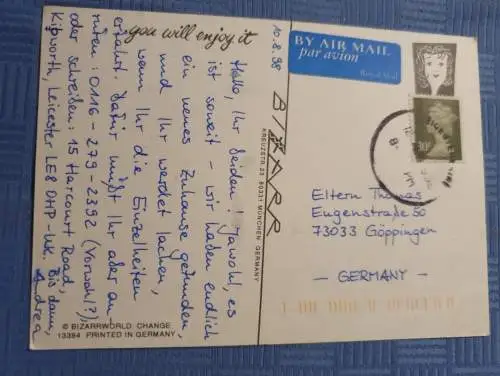 10.8.98
Hallo, Ihr beiden! Jawohl, es
ist soweit - wir haben endlich
ein neues Zuhause gefunden,
und Ihr werdet lachen,
wenn Ihr die Einzelheiten
erfahrt. Dafür müßt Ihr aber an-
rufen: 0116-279-2392 (Vorwahl?),
oder schreiben: 15 Harcourt Road,
Kibworth, Leicester LE8 0HP - UK. Bis dann,
Andrea
...you will enjoy it
BIZARR
KREUZSTR. 23 80331 MÜNCHEN GERMANY
© BIZARRWORLD CHANGE
13394 PRINTED IN GERMANY
BY AIR MAIL
par avion
Royal Mail
Eltern Thomas
Eugenstraße 50
73033 Göppingen
- GERMANY -